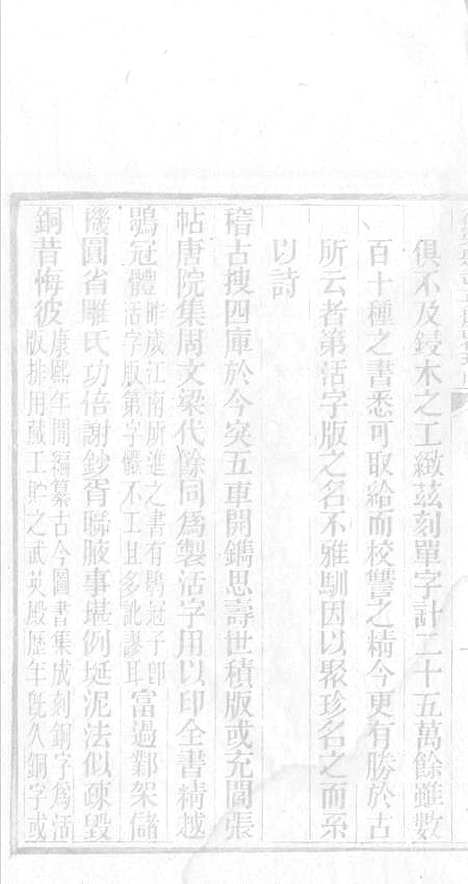 俱不及鋟木之工緻茲刻單字計二十五萬餘雖數
百十種之書悉可取給而校讐之精今更有勝於古
所云者第活字版之名不雅馴因以聚珍名之而系
以詩
稽古搜四庫於今突五車開鐫思壽世積版或充閭張
帖唐院集周文梁代餘同為製活字用以印全書精越
鶡冠體昨歲江南所進之書有鶡冠子即活字版第字體不工且多訛謬耳富過鄴架儲
機圓省雕氏功倍謝鈔胥聯腋事堪例埏泥法似疎毀
銅昔悔彼康熙年間編纂古今圖書集成刻銅字為活版排用蕆工貯之武英殿歷年旣久銅字或